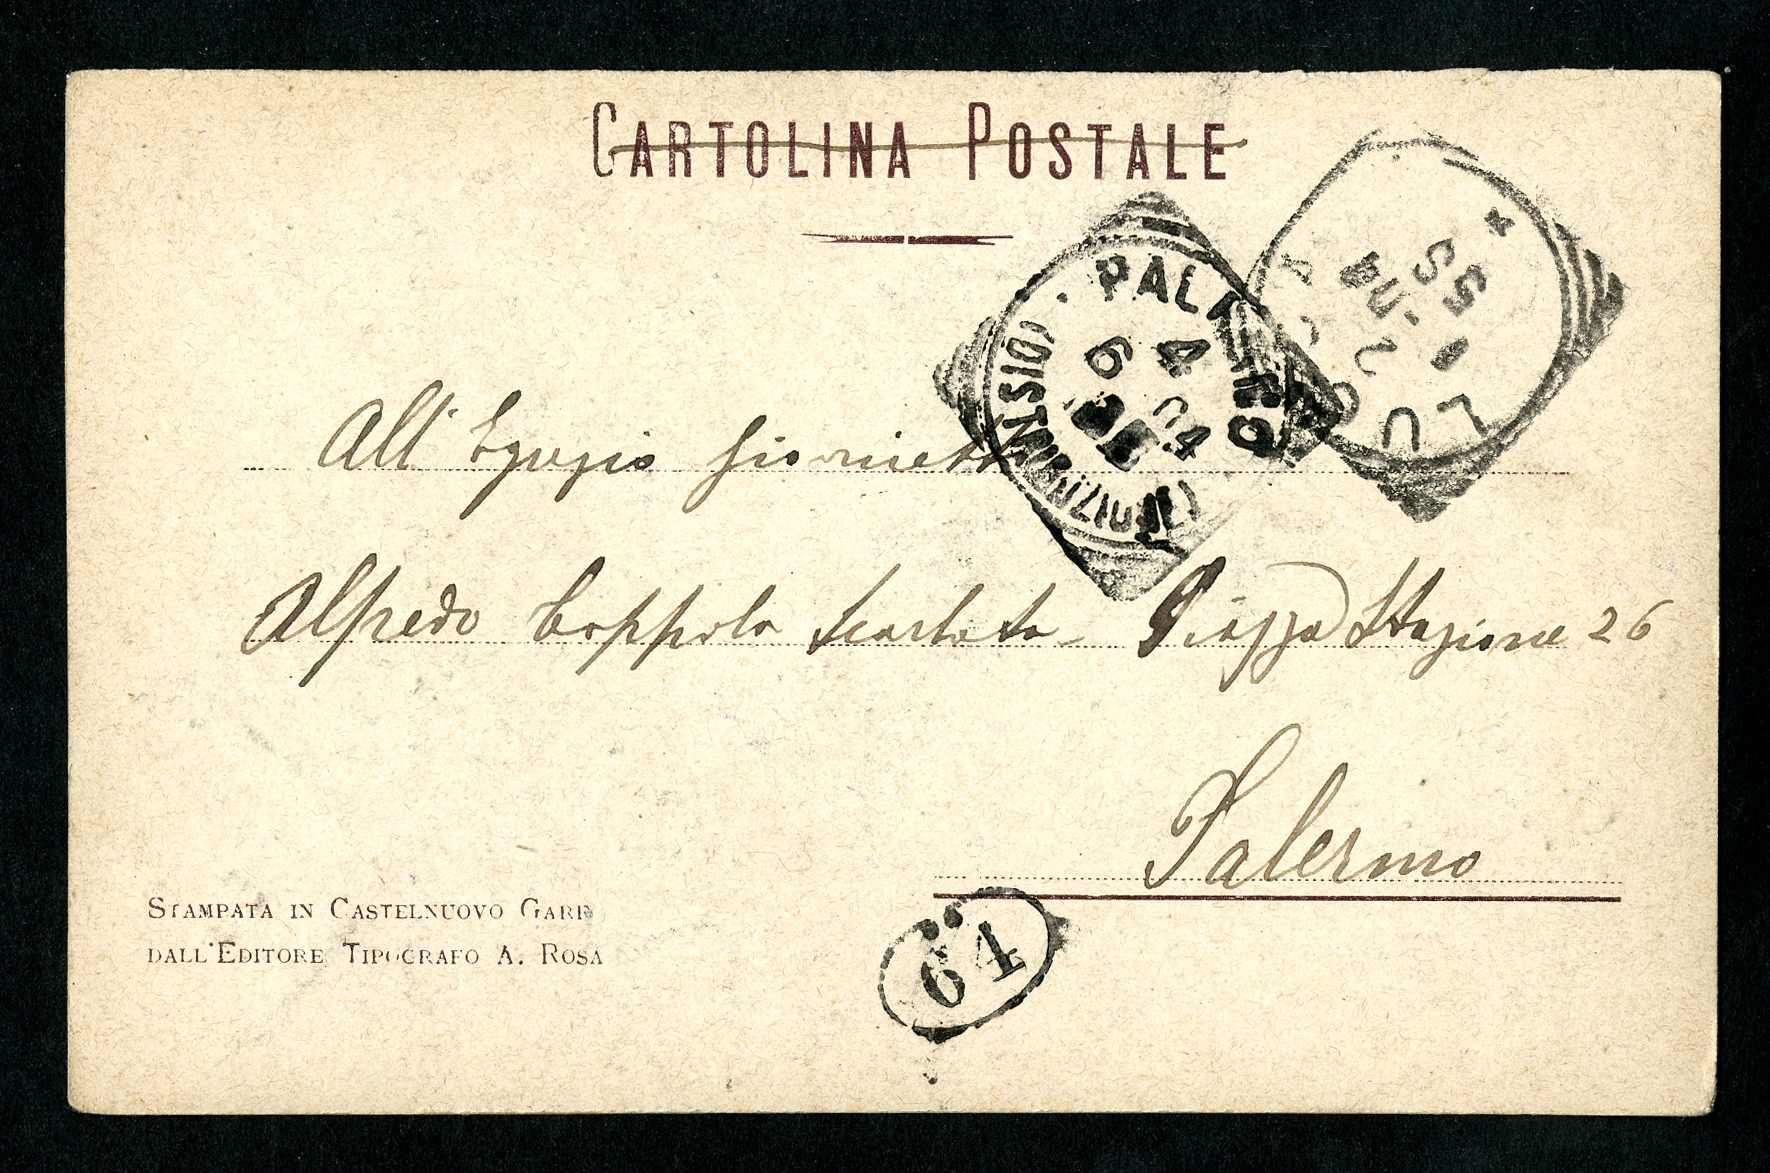 CARTOLINA POSTALE
LUCCA
1 55
2.04
PALERMO
4
6
04
(DISTRIBUZIONE)
All' Egregio Giovinetto
Alfredo Coppola Scarlata - Piazza Stazione 26
Palermo
STAMPATA IN CASTELNUOVO GARF
DALL'EDITORE TIPOGRAFO A. ROSA
64